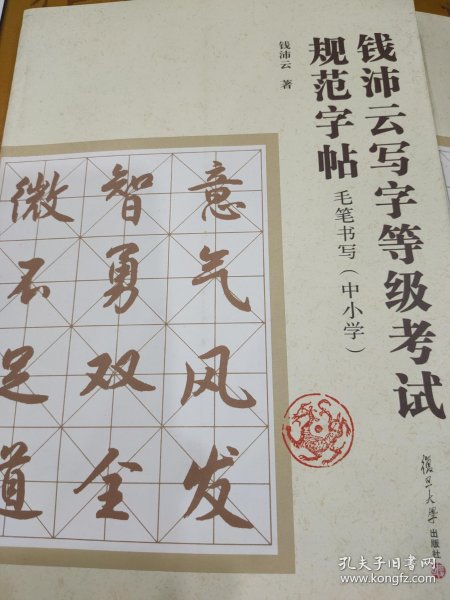 钱沛云写字等级考试
规范字帖
毛笔书写(中小学)
钱沛云 著
意气风发
智勇双全
微不足道
復旦大学出版社
孔夫子旧书网
www.kongfz.com